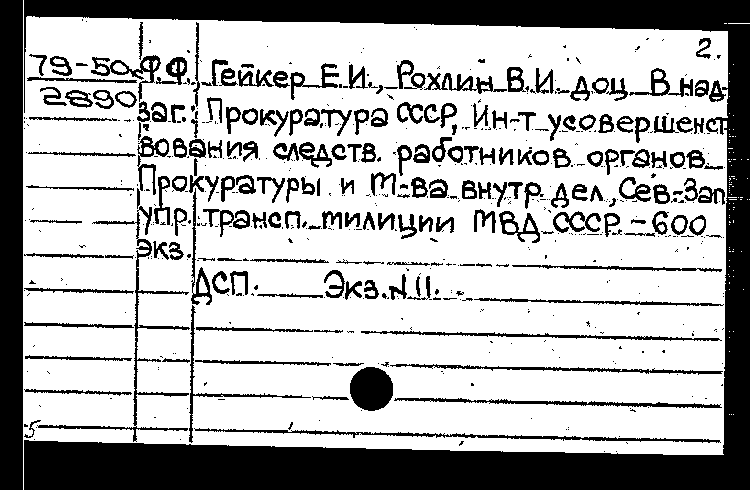 2.
79-50 Ф.Ф., Гейкер Е.И., Рохлин В.И. доц. В над-
2890 заг.: Прокуратура СССР, Ин-т усовершенст
вования следств. работников органов
Прокуратуры и М-ва внутр дел, Сев.-Зап
упр. трансп. милиции МВД СССР. - 600
экз.
ДСП. Экз. N 11.
5